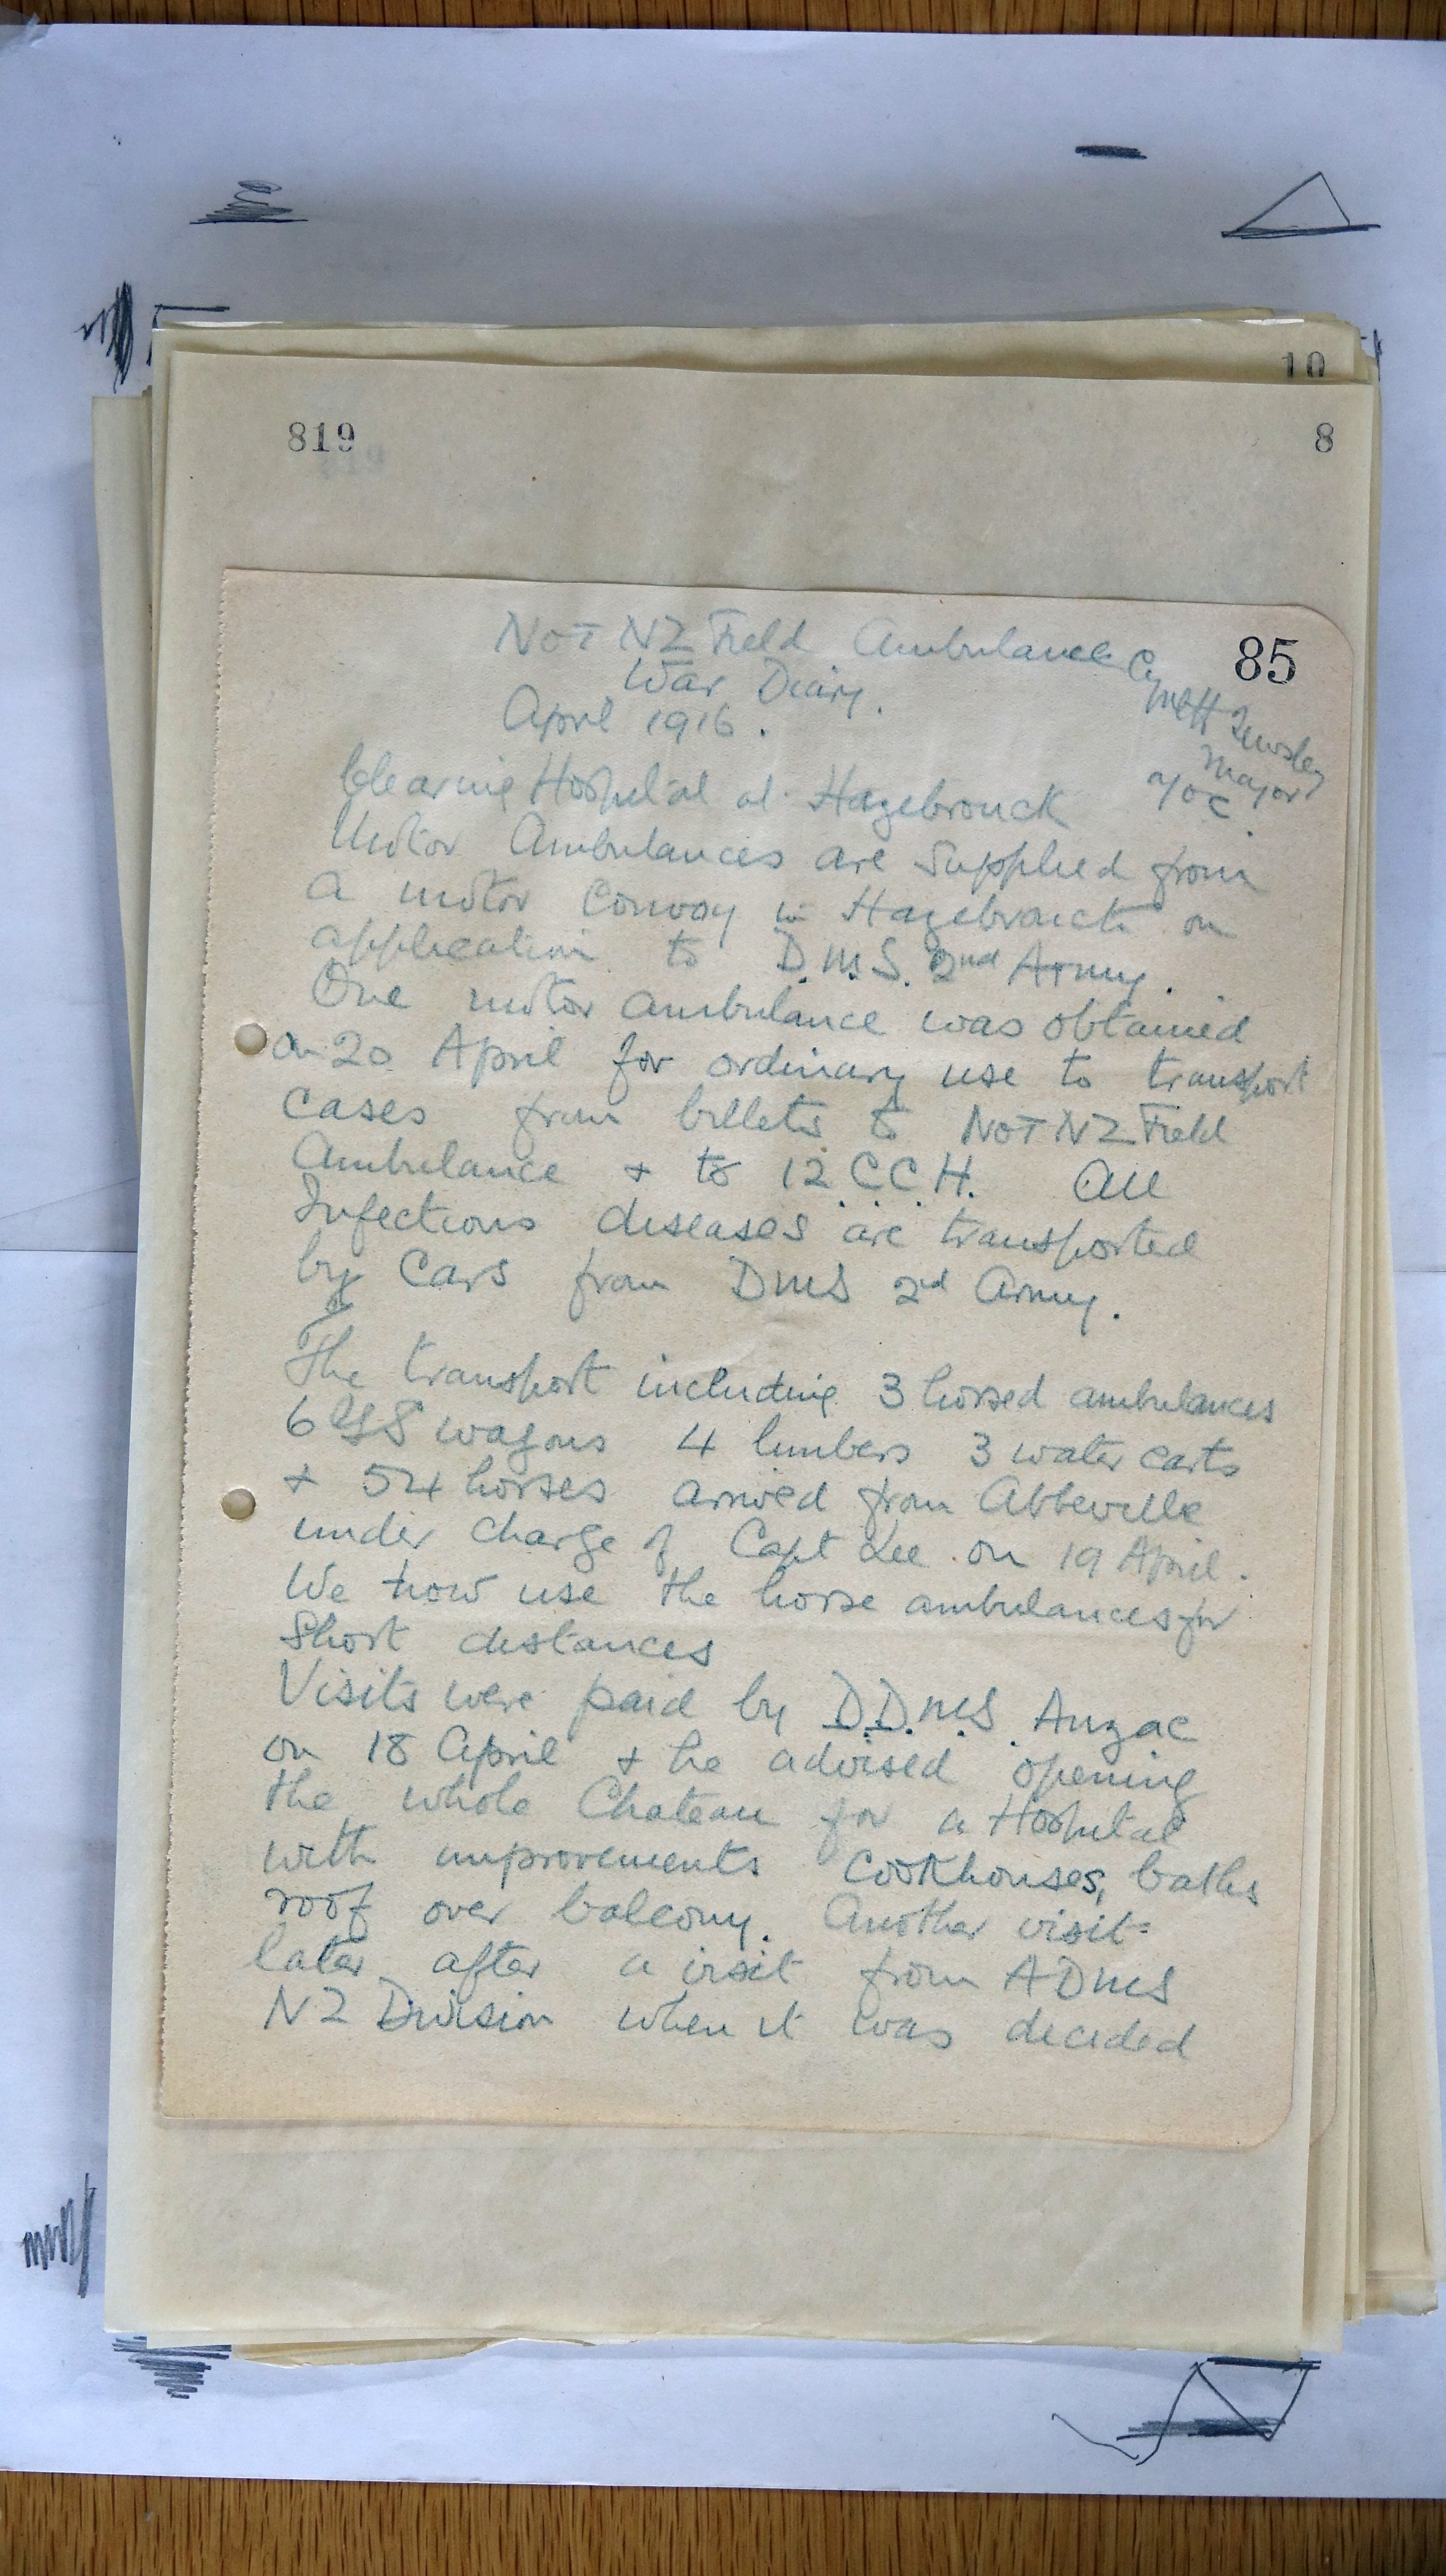 10
819
8
85
No I NZ Field Ambulance
War Diary.
April 1916.
Major
a/oc.
Clearing Hospital at Hazebrouck
Motor Ambulances are supplied from
a motor convoy in Hazebrouck on
application to D.M.S. 2nd Army.
One motor ambulance was obtained
on 20 April for ordinary use to transport
cases from billets to No I NZ Field
Ambulance + to 12 C.C.H. All
Infectious diseases are transported
by Cars from DMS 2nd Army.
The transport including 3 horsed ambulances
6 GS wagons 4 limbers 3 water carts
+ 54 horses arrived from Abbeville
under charge of Capt Lee on 19 April.
We now use the horse ambulances for
Short distances
Visits were paid by D.D.M.S. Anzac
on 18 April + he advised opening
the whole Chateau for a Hospital
with improvements Cookhouses, baths
roof over balcony. Another visit
later after a visit from ADMS
NZ Division when it was decided